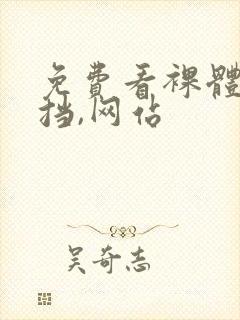 免費看裸體
挡,网佔
吴奇志